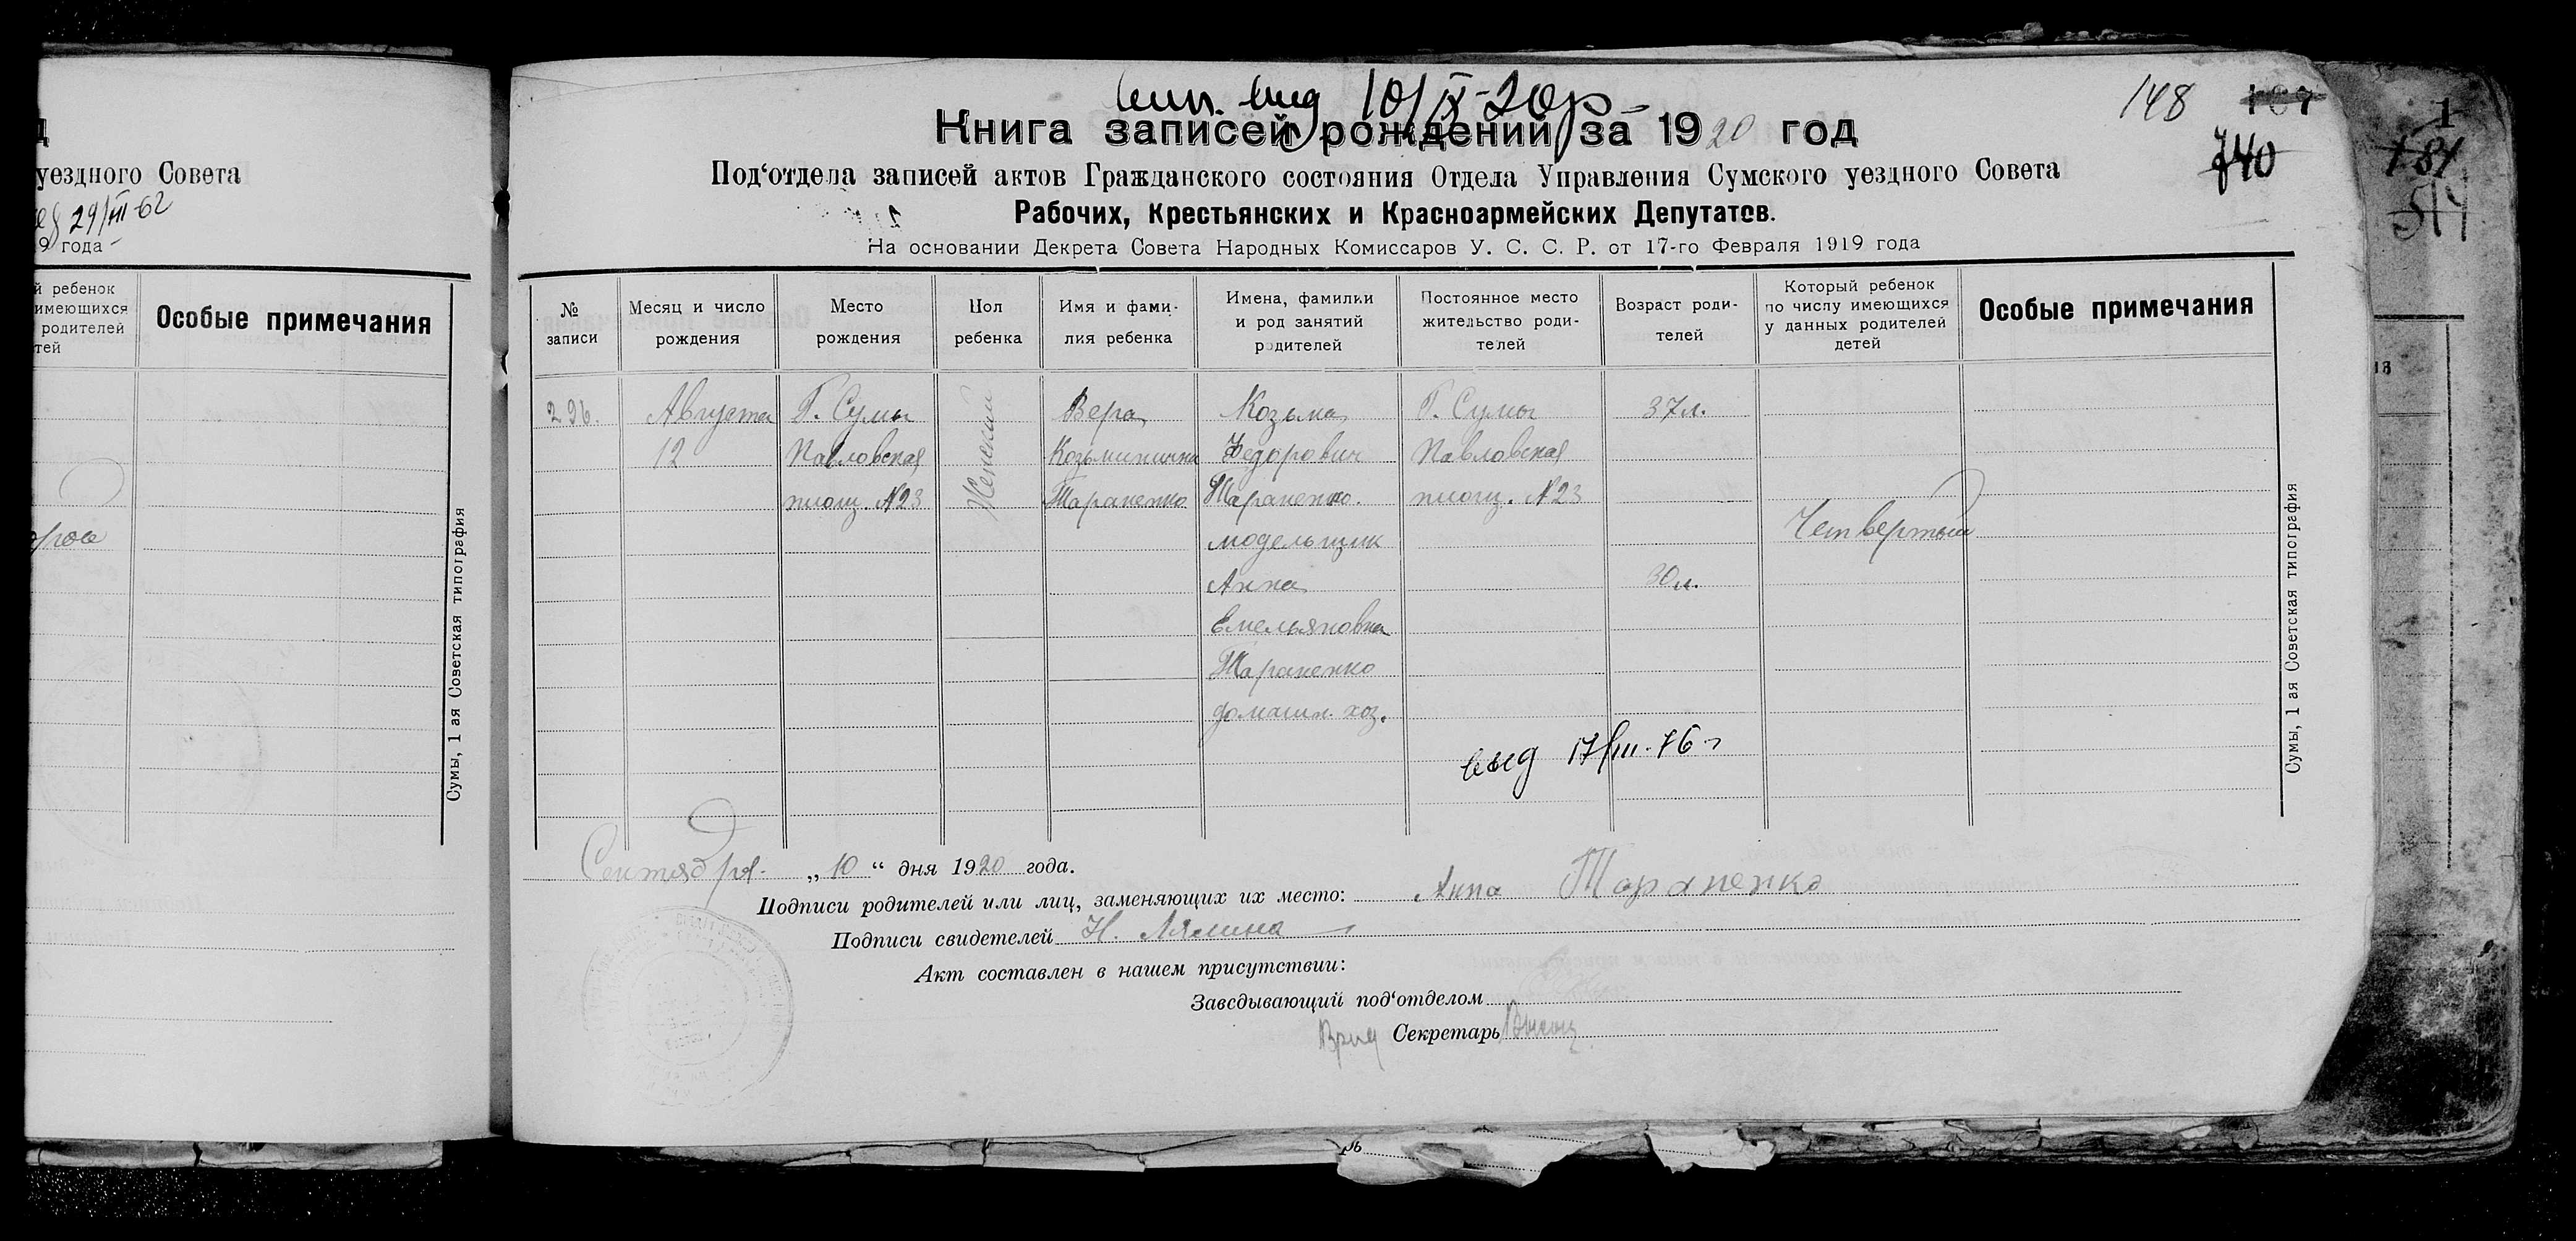 уездного Совета
29/III-62
9 года
й ребенок
имеющихся
родителей
тей
Особые примечания
Сумы, 1 ая Советская типография
выд 10/IX-20р
148
740
Книга записей рождений за 1920 год
Под‘отдела записей актов Гражданского состояния Отдела Управления Сумского уездного Совета
Рабочих, Крестьянских и Красноармейских Депутатов.
На основании Декрета Совета Народных Комиссаров У. С. С. Р. от 17-го Февраля 1919 года
№ записи
Месяц и число рождения
Место рождения
Пол ребенка
Имя и фами- лия ребенка
Имена, фамилии и род занятий родителей
Постоянное место жительство роди- телей
Возраст роди- телей
Который ребенок по числу имеющихся у данных родителей детей
Особые примечания
296. Августа Г. Сумы Женский Вера Козьма Г. Сумы 37л.
12 Павловская Козьминична Федорович Павловская
площ. №23 Тараненко Тараненко. площ. №23
Четвертый
модельщик
Анна 30л.
Емельяновна
Тараненко
домашн. хоз.
выд 17/III-76 г
Сумы, 1 ая Советская типография
Сентября „10“ дня 1920 года.
Подписи родителей или лиц, заменяющих их место: Анна Тараненко
Подписи свидетелей Н. Лялина
Акт составлен в нашем присутствии:
Заведывающий под‘отделом
Врид Секретарь